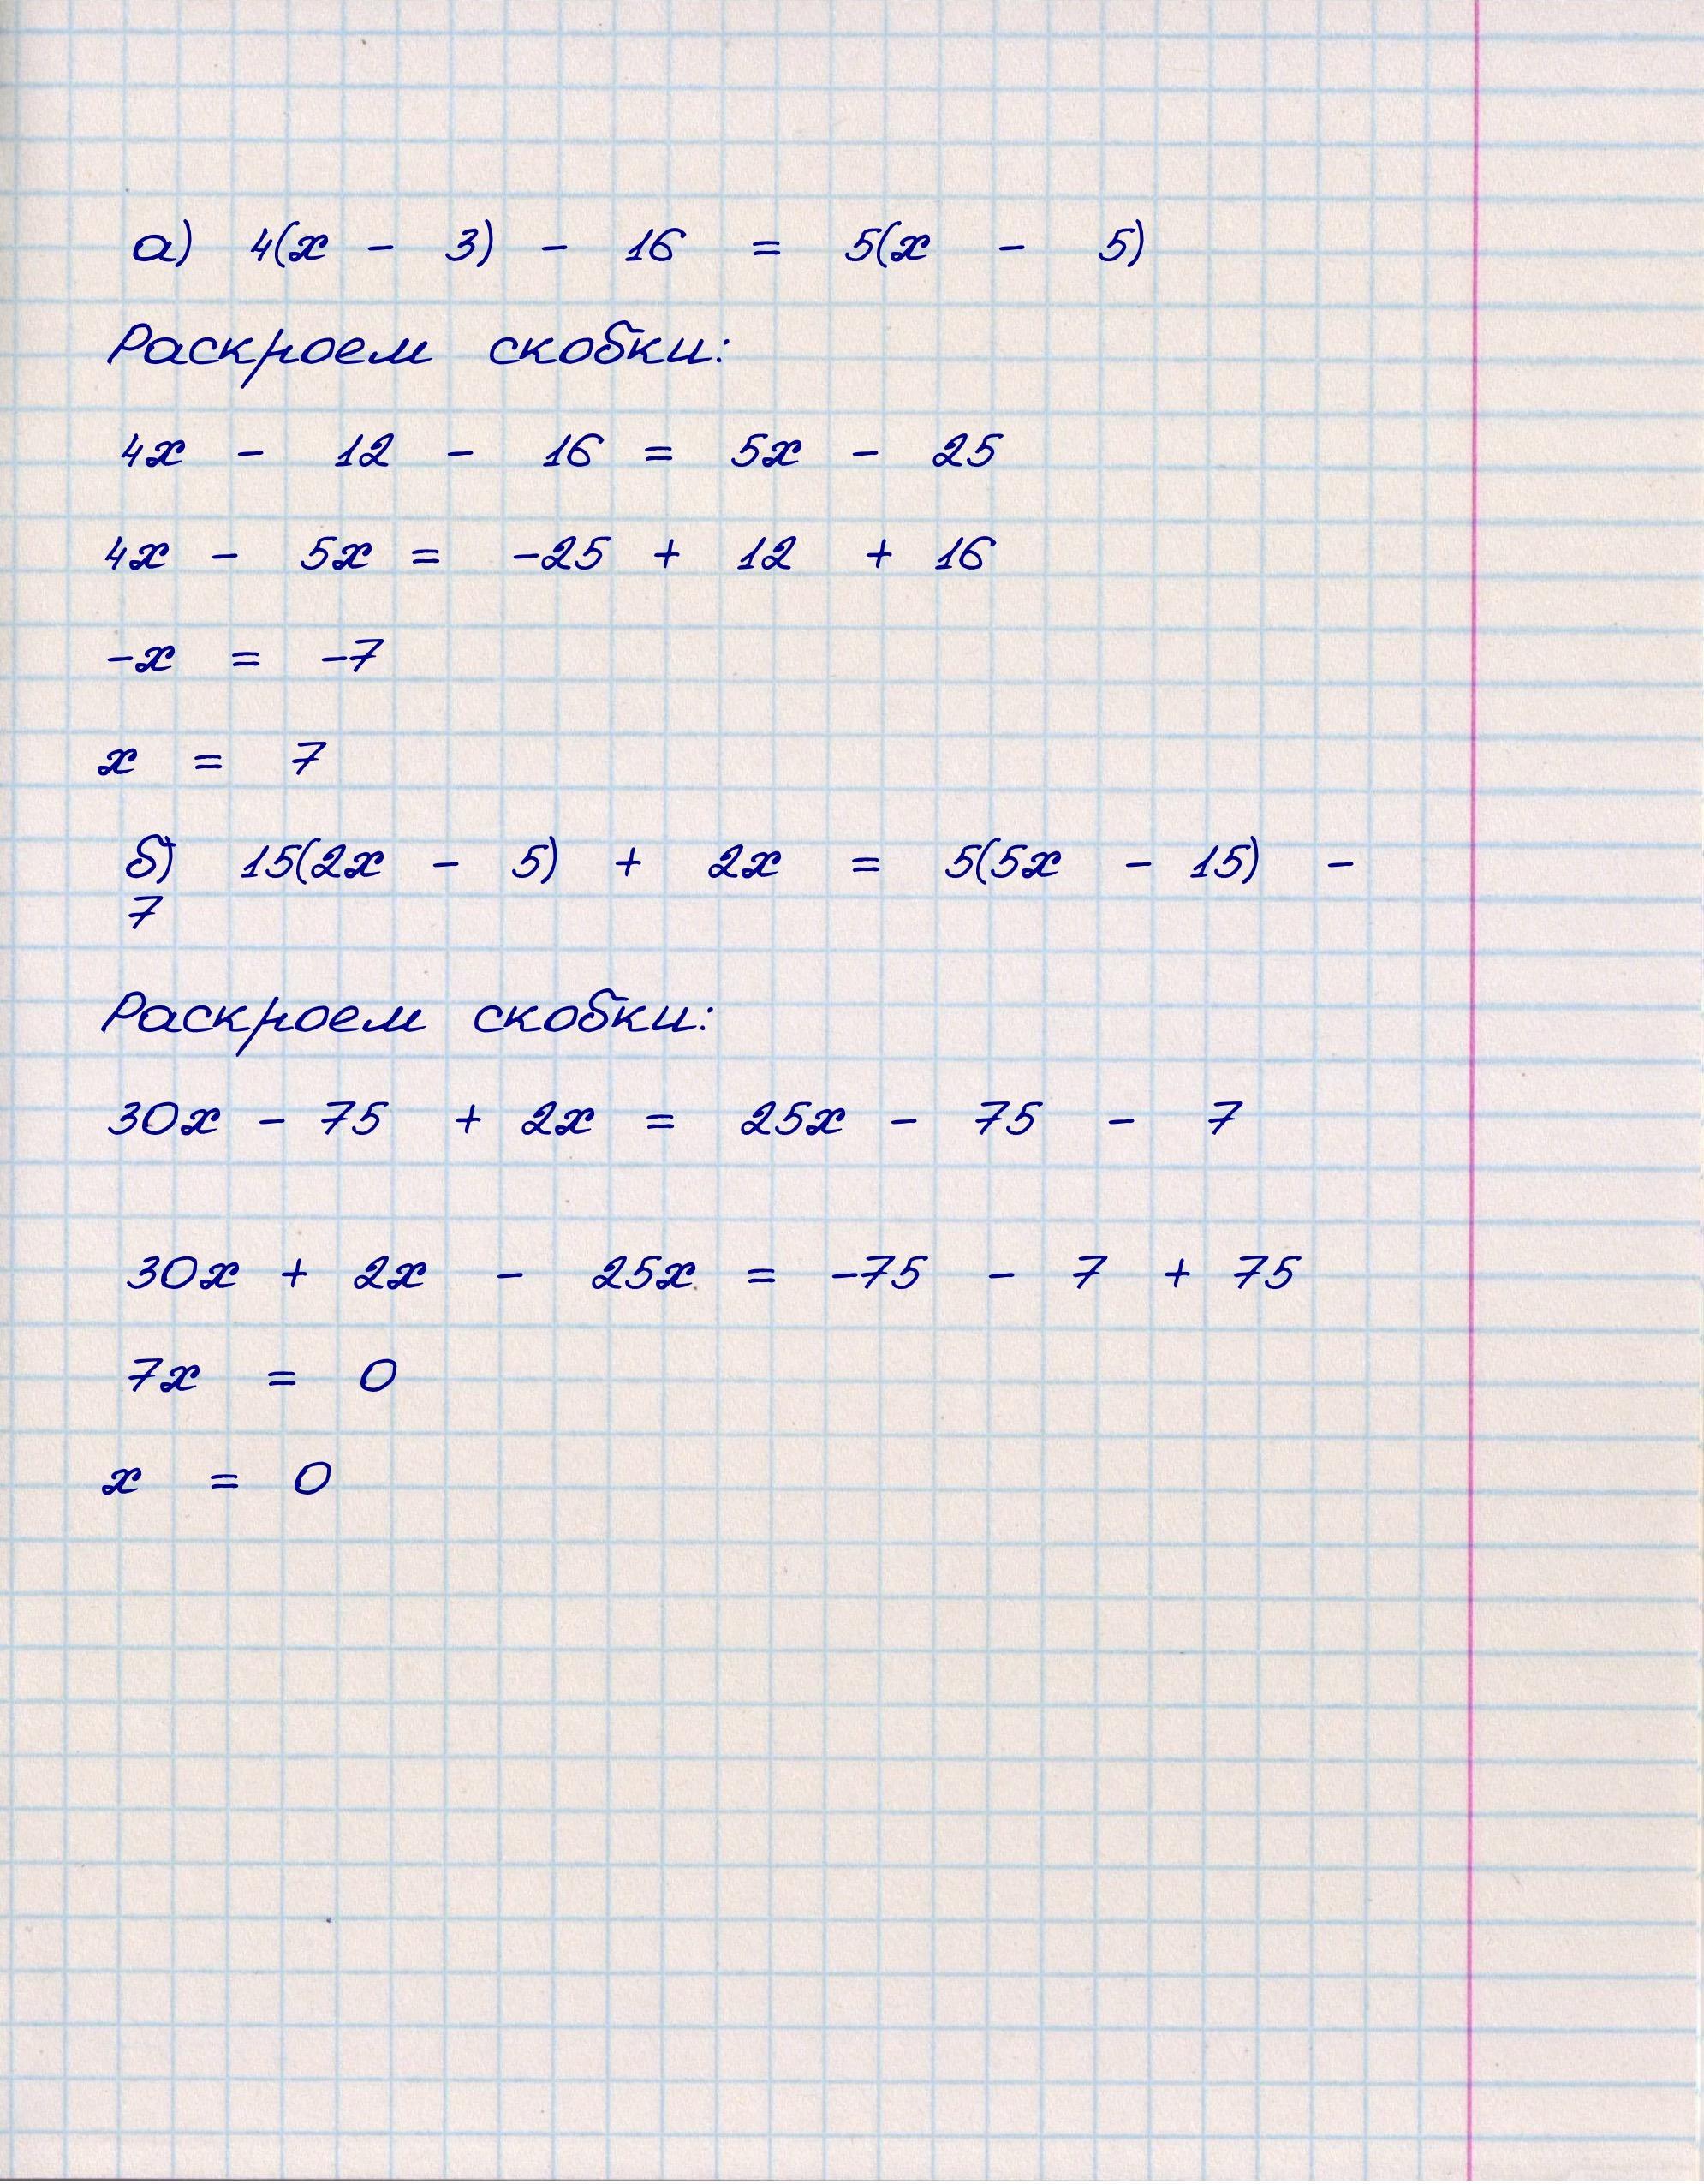 а) 4(х - 3) - 16 = 5(х - 5)
Раскроем скобки:
4х - 12 - 16 = 5х - 25
4х - 5х = -25 + 12 + 16
-х = -7
х = 7
б) 15(2х - 5) + 2х = 5(5х - 15) -
7
Раскроем скобки:
30х - 75 + 2х = 25х - 75 - 7
30х + 2х - 25х = -75 - 7 + 75
7х = 0
х = 0